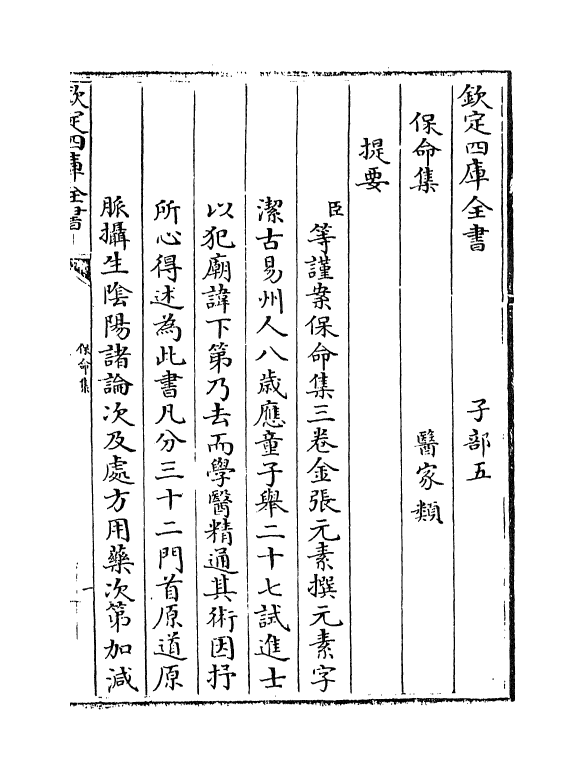 欽定四庫全書 子部五
保命集 醫家類
提要
臣等謹案保命集三卷金張元素撰元素字
潔古易州人八歲應童子舉二十七試進士
以犯廟諱下第乃去而學醫精通其術因抒
所心得述為此書凡分三十二門首原道原
脈攝生陰陽諸論次及處方用藥次第加減
欽定四庫全書
保命集
一